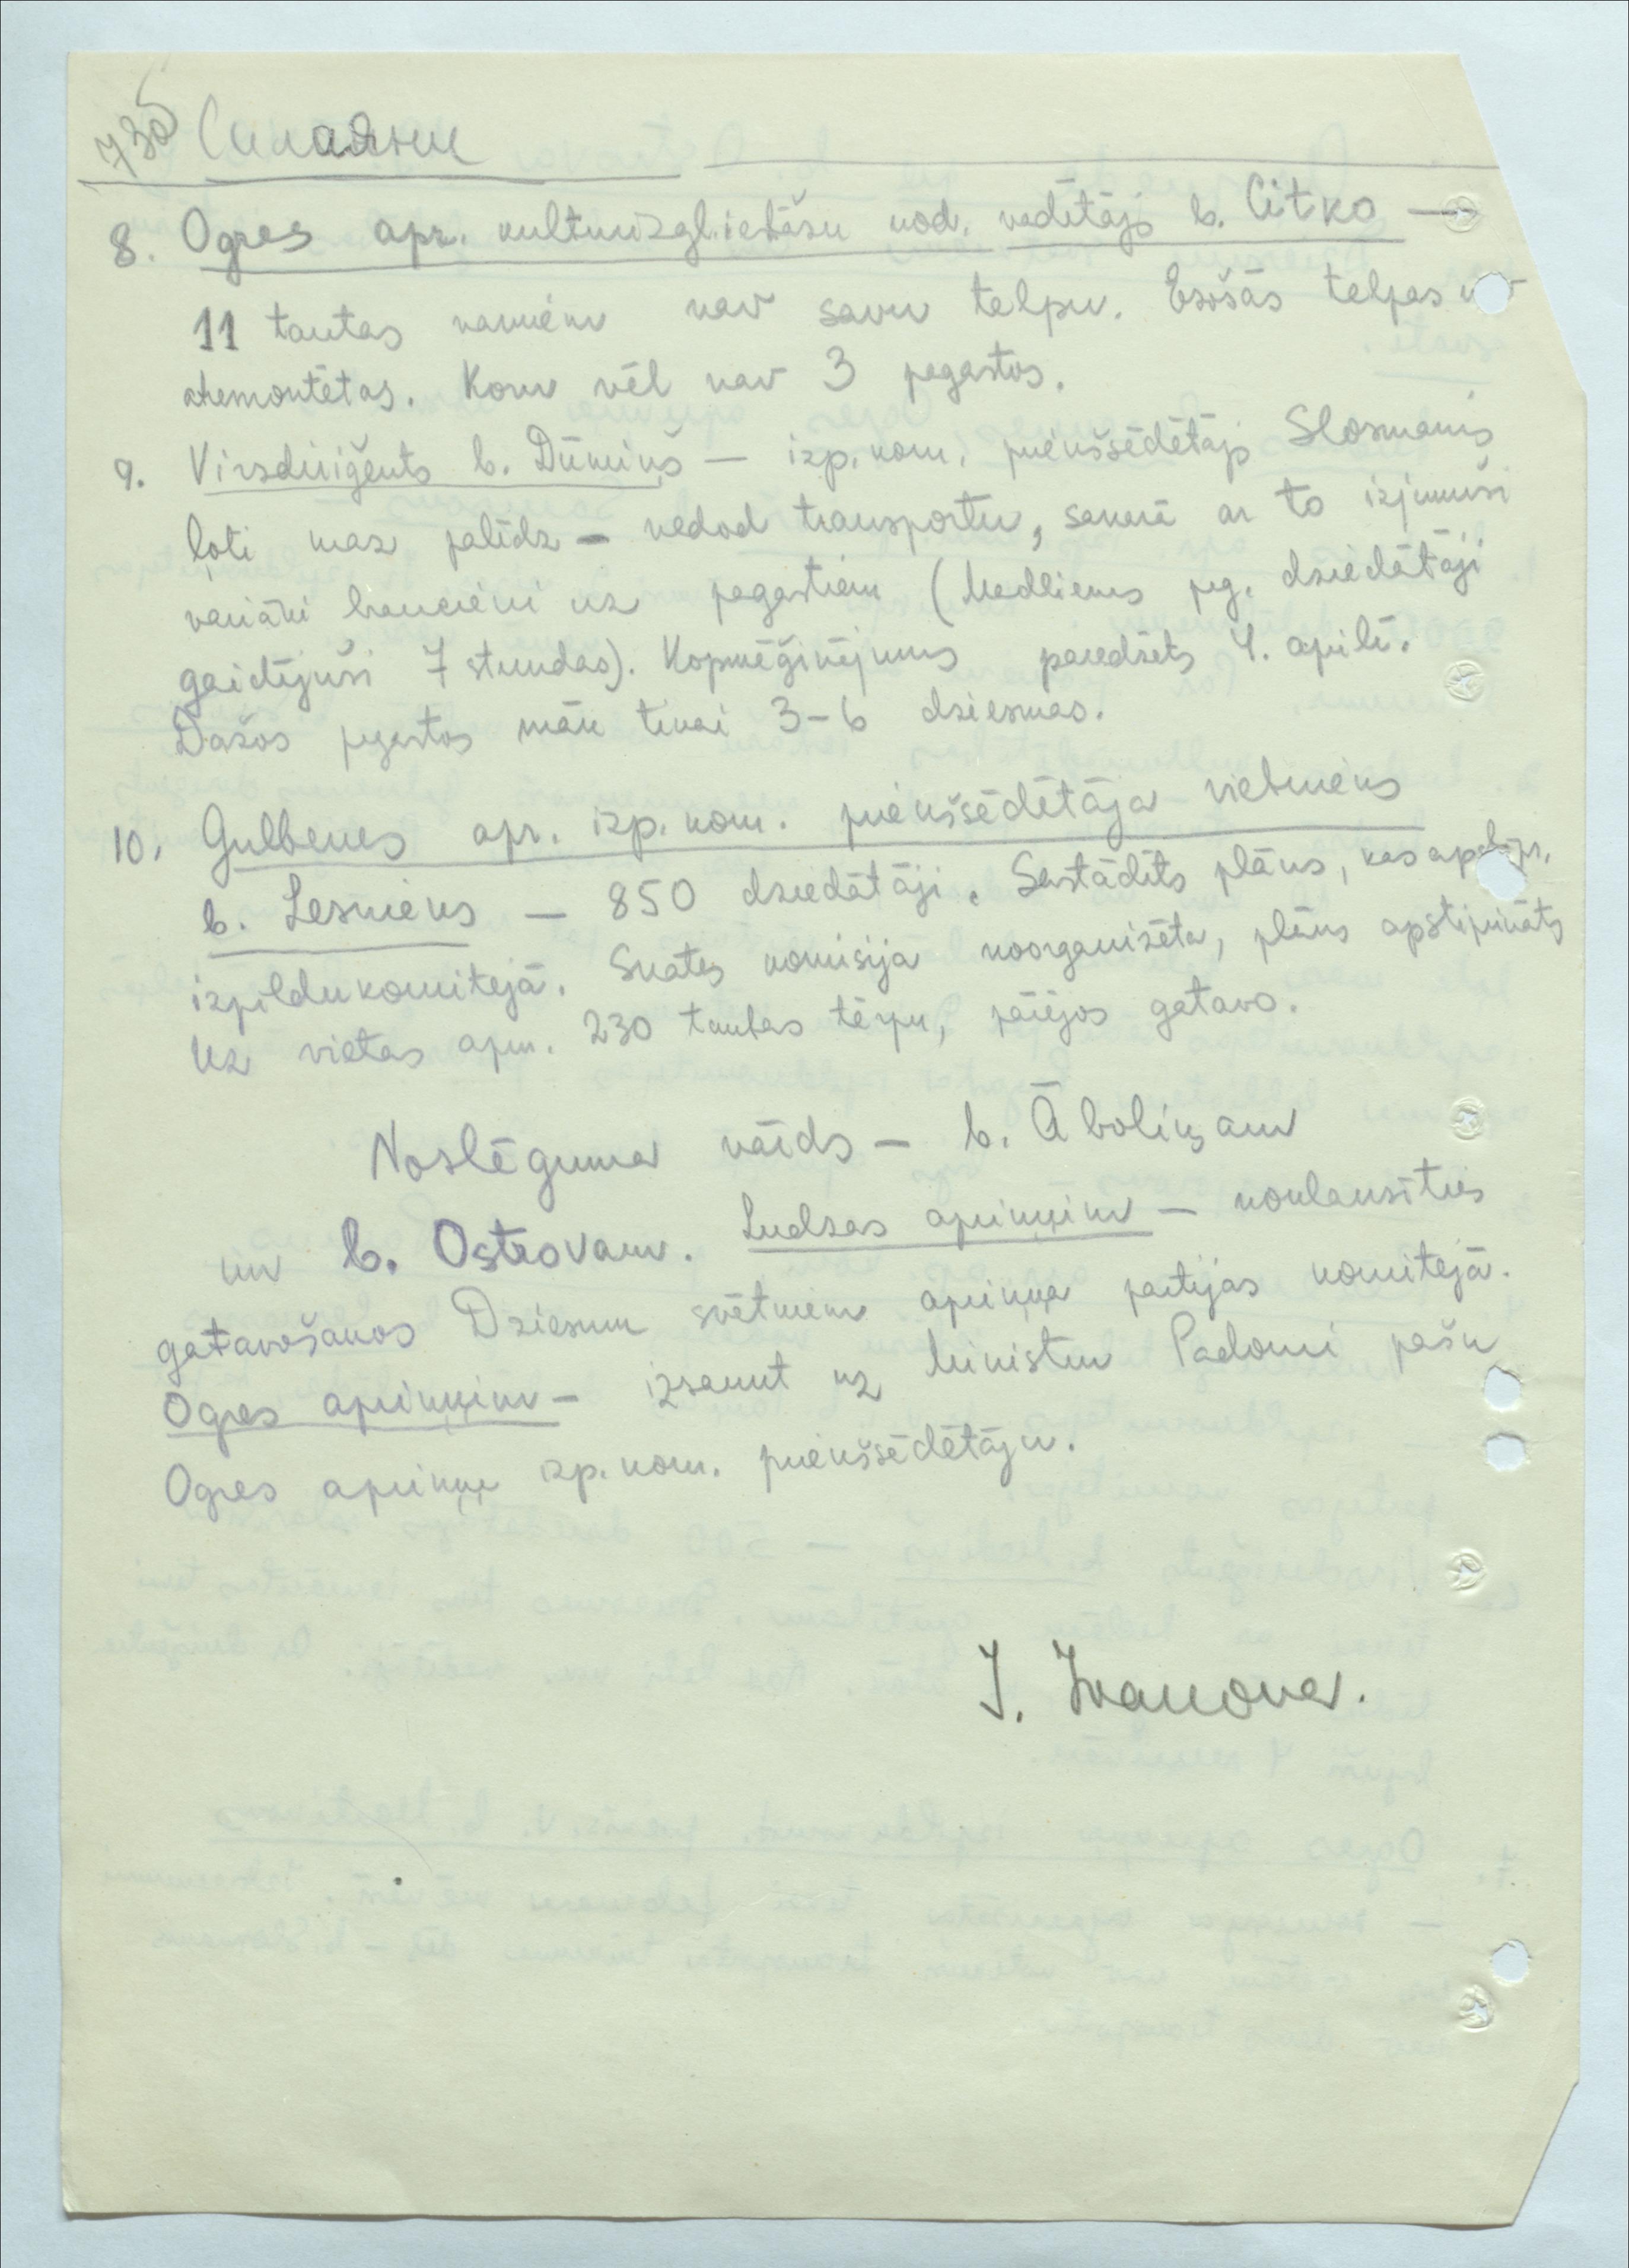 730 Силаяни
8. Ogres apr. kulturizglietāšu nod. vadītājs b. Citko —
11 tautas namiem nav savu telpu. Esošās telpas
atremontētas. Koru vēl nav 3 pagastos.
9. Virsdiriģents b. Dūmiņš — izp. kom. priekšsēdētājs Slosmanis
ļoti maz palīdz — nedod transportu, sakarā ar to izjukuši
vairāki braucieni uz pagastiem (Medlienas pag. dziedātāji
gaidījuši 7 stundas). Kopmēģinājums paredzēts 4. aprīlī.
Dažos pagastos māk tikai 3-6 dziesmas.
10. Gulbenes apr. izp. kom. priekšsēdētāja vietnieks
b. Lesnieks — 850 dziedātāji. Sastādīts plāns, kas
izpildu komitejā. Skates komisija noorganizēta, plāns apstiprināts
Uz vietas apm. 230 tautas tērpu, pārējos gatavo.
Noslēguma vārds — b. Āboliņam
un b. Ostrovam. Ludzas apriņķim — noklausīties
gatavošanos Dziesmu svētkiem apriņķa partijas komitejā.
Ogres apriņķim — izsaukt uz Ministru Padomi pašu
Ogres apriņķa izp. kom. priekšsēdētāju.
J. Ivanova.